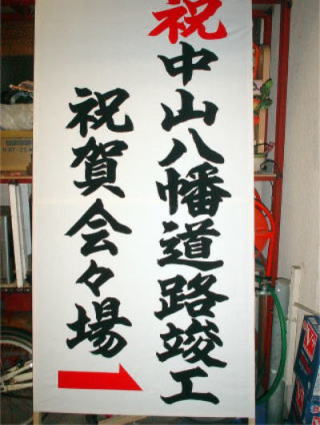 祝中山八幡道路竣工
祝賀会々場